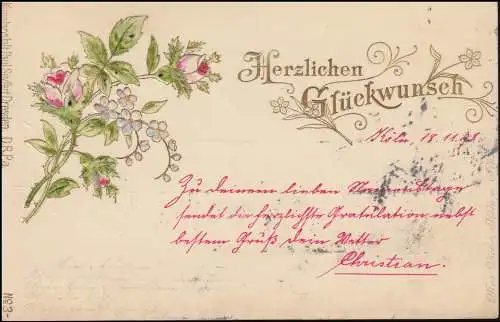 Herzlichen
Glückwunsch
Köln, 18.11.98.
Zu deinem lieben Namenstage
sendet die herzlichste Gratulation nebst
bestem Gruß, dein Vetter
Christian.
Dresden. D.R.P.a.
No 3-